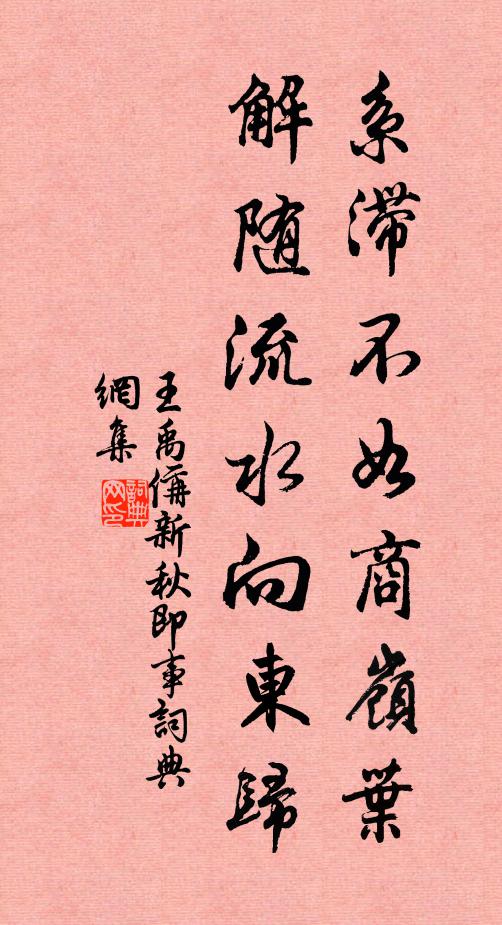 系滯不如商嶺葉
解随流水向東歸
王禹偁新秋即事詞典
網集
詞典网印